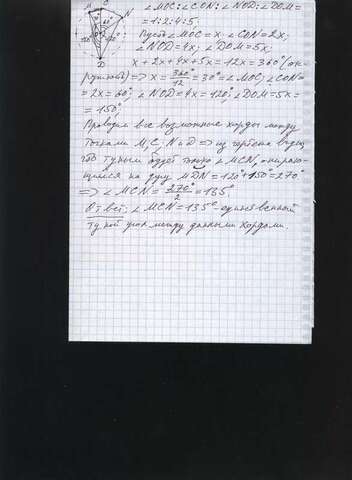 ∠MOC:∠CON:∠NOD:∠DOM=
=1:2:4:5;
Пусть ∠MOC=x, ∠CON=2x;
∠NOD=4x; ∠DOM=5x;
x+2x+4x+5x=12x=360°(ок-
ружность)=>x=360°/12=30°=∠MOC; ∠CON=
=2x=60°; ∠NOD=4x=120°; ∠DOM=5x=
=150°;
Проводим все возможные хорды между
точками M, C, N и D => из чертежа видно,
что тупым будет только ∠MCN, опираю-
щийся на дугу MDN=120°+150°=270°
=> ∠MCN=270°/2=135°
Ответ: ∠MCN=135°-единственный
тупой угол между данными хордами.
M
C
N
O
D